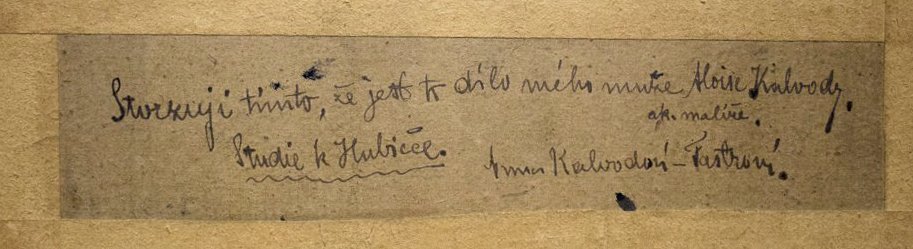 Stvrzuji tímto, že jest to dílo mého muže Aloise Kalvody,
ak. malíře.
Studie k Hubičce.
Anna Kalvodová-